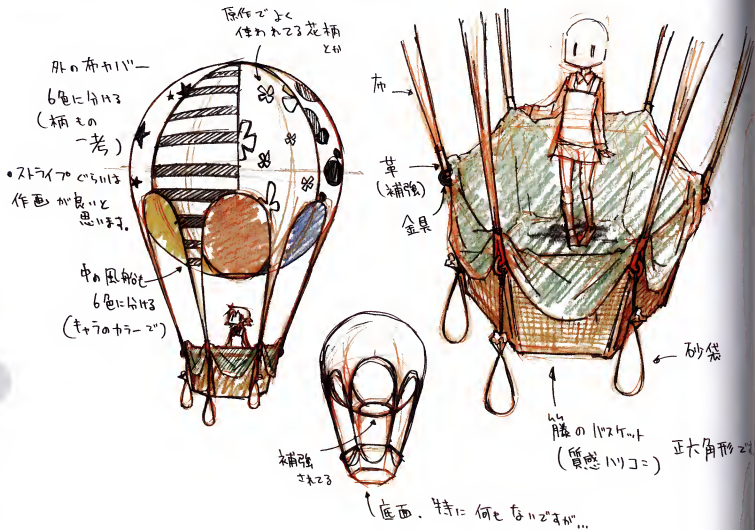 原作でよく
使われてる花柄
とか
外の布カバー
6色に分ける
(柄もの
一考)
・ストライプぐらいは
作画が良いと
思います。
中の風船も
6色に分ける
(キャラのカラーで)
布
革
(補強)
金具
砂袋
籐のバスケット
(質感ハリコミ)
正六角形で
補強
されてる
底面、特に何もないですが…